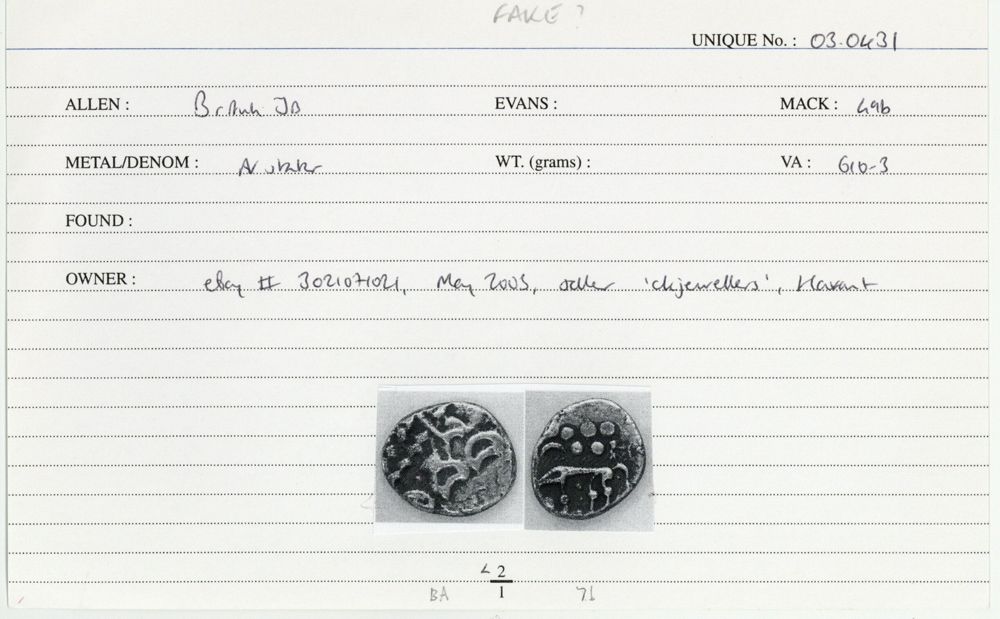 FAKE?
UNIQUE No. : 03.0431
ALLEN : British JB EVANS : MACK : 49b
METAL/DENOM : AV stater WT. (grams) : VA : 610-3
FOUND :
OWNER : ebay # 3021071021, May 2003, seller 'ckjewellers', Havant
< 2
BA 1 71